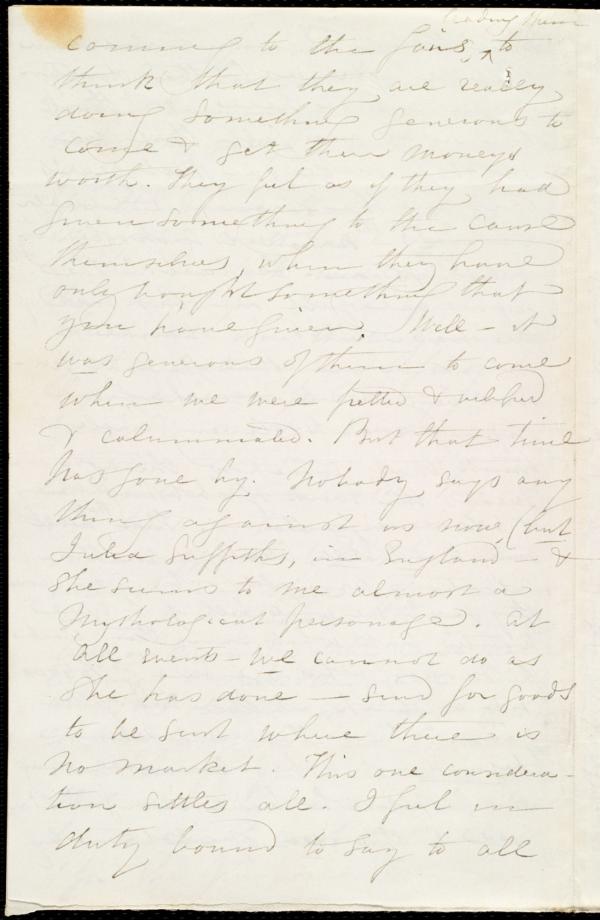 leading them
coming to the fairs, ^ to
think that they are really
doing something generous to
come & get their money's
worth. They feel as if they had
given something to the cause
themselves, when they have
only bought something that
you have given. Well - it
was generous of them to come
when we were pelted &
& calumniated. But that time
has gone by. Nobody says any
thing against us now, (but
Julia Griffiths, in England - &
she seems to me almost a
Mythological personage. At
all events - we cannot do as
she has done - send for goods
to be sent where there is
no market. This one considera-
tion settles all. I feel in
duty bound to say to all